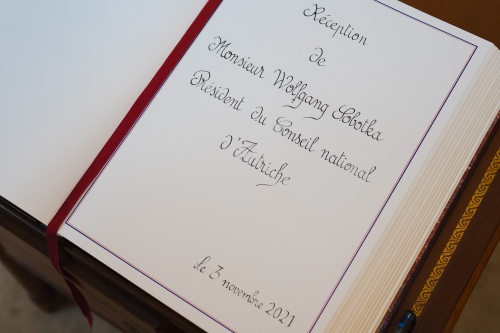 Réception
de
Monsieur Wolfgang Sobotka
Président du Conseil national
d'Autriche
le 3 novembre 2021